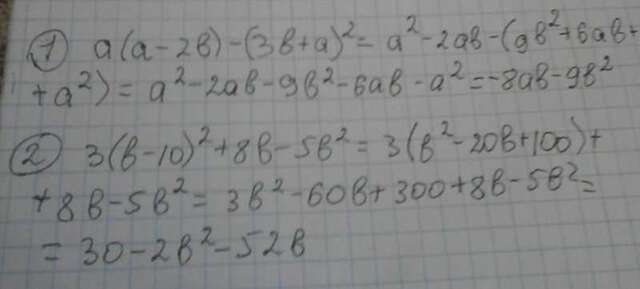 1 a(a-2в)-(3в+a)²= a²-2aв-(9в²+6aв+
+a²)= a²-2aв-9в²-6aв-a²=-8aв-9в²
2 3(в-10)²+8в-5в²=3(в²-20в+100)+
+8в-5в²= 3в²-60в+300+8в-5в²=
= 30-2в²-52в